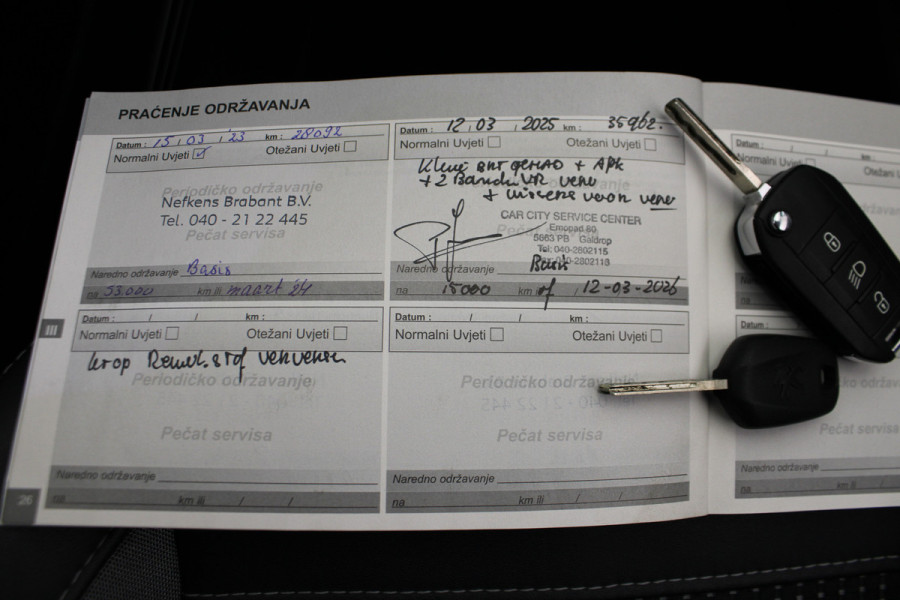 PRAĆENJE ODRŽAVANJA
Datum : 15 / 03 / '23 km : 28092
Normalni Uvjeti Otežani Uvjeti
Periodičko održavanje
Nefkens Brabant B.V.
Tel. 040 - 21 22 445
Pečat servisa
Naredno održavanje Basis
na 53.000 km ili maart '24
Datum : 12 / 03 / 2025 km : 35962.
Normalni Uvjeti Otežani Uvjeti
+ APK
+ 2
+
CAR CITY SERVICE CENTER
5663 PB Geldrop
Tel: 040-2802115
040-2802118
Naredno održavanje
na 15000 km of / 12-03-2026
III
Datum : / / km :
Normalni Uvjeti Otežani Uvjeti
Periodičko održavanje
Pečat servisa
Naredno održavanje
na km ili / /
Datum : / / km :
Normalni Uvjeti Otežani Uvjeti
Periodičko održavanje
Pečat servisa
Naredno održavanje
na km ili / /
26
Datum :
Normalni
Datum :
Normalni
Pečat servisa
Naredno održavanje
na km ili / /